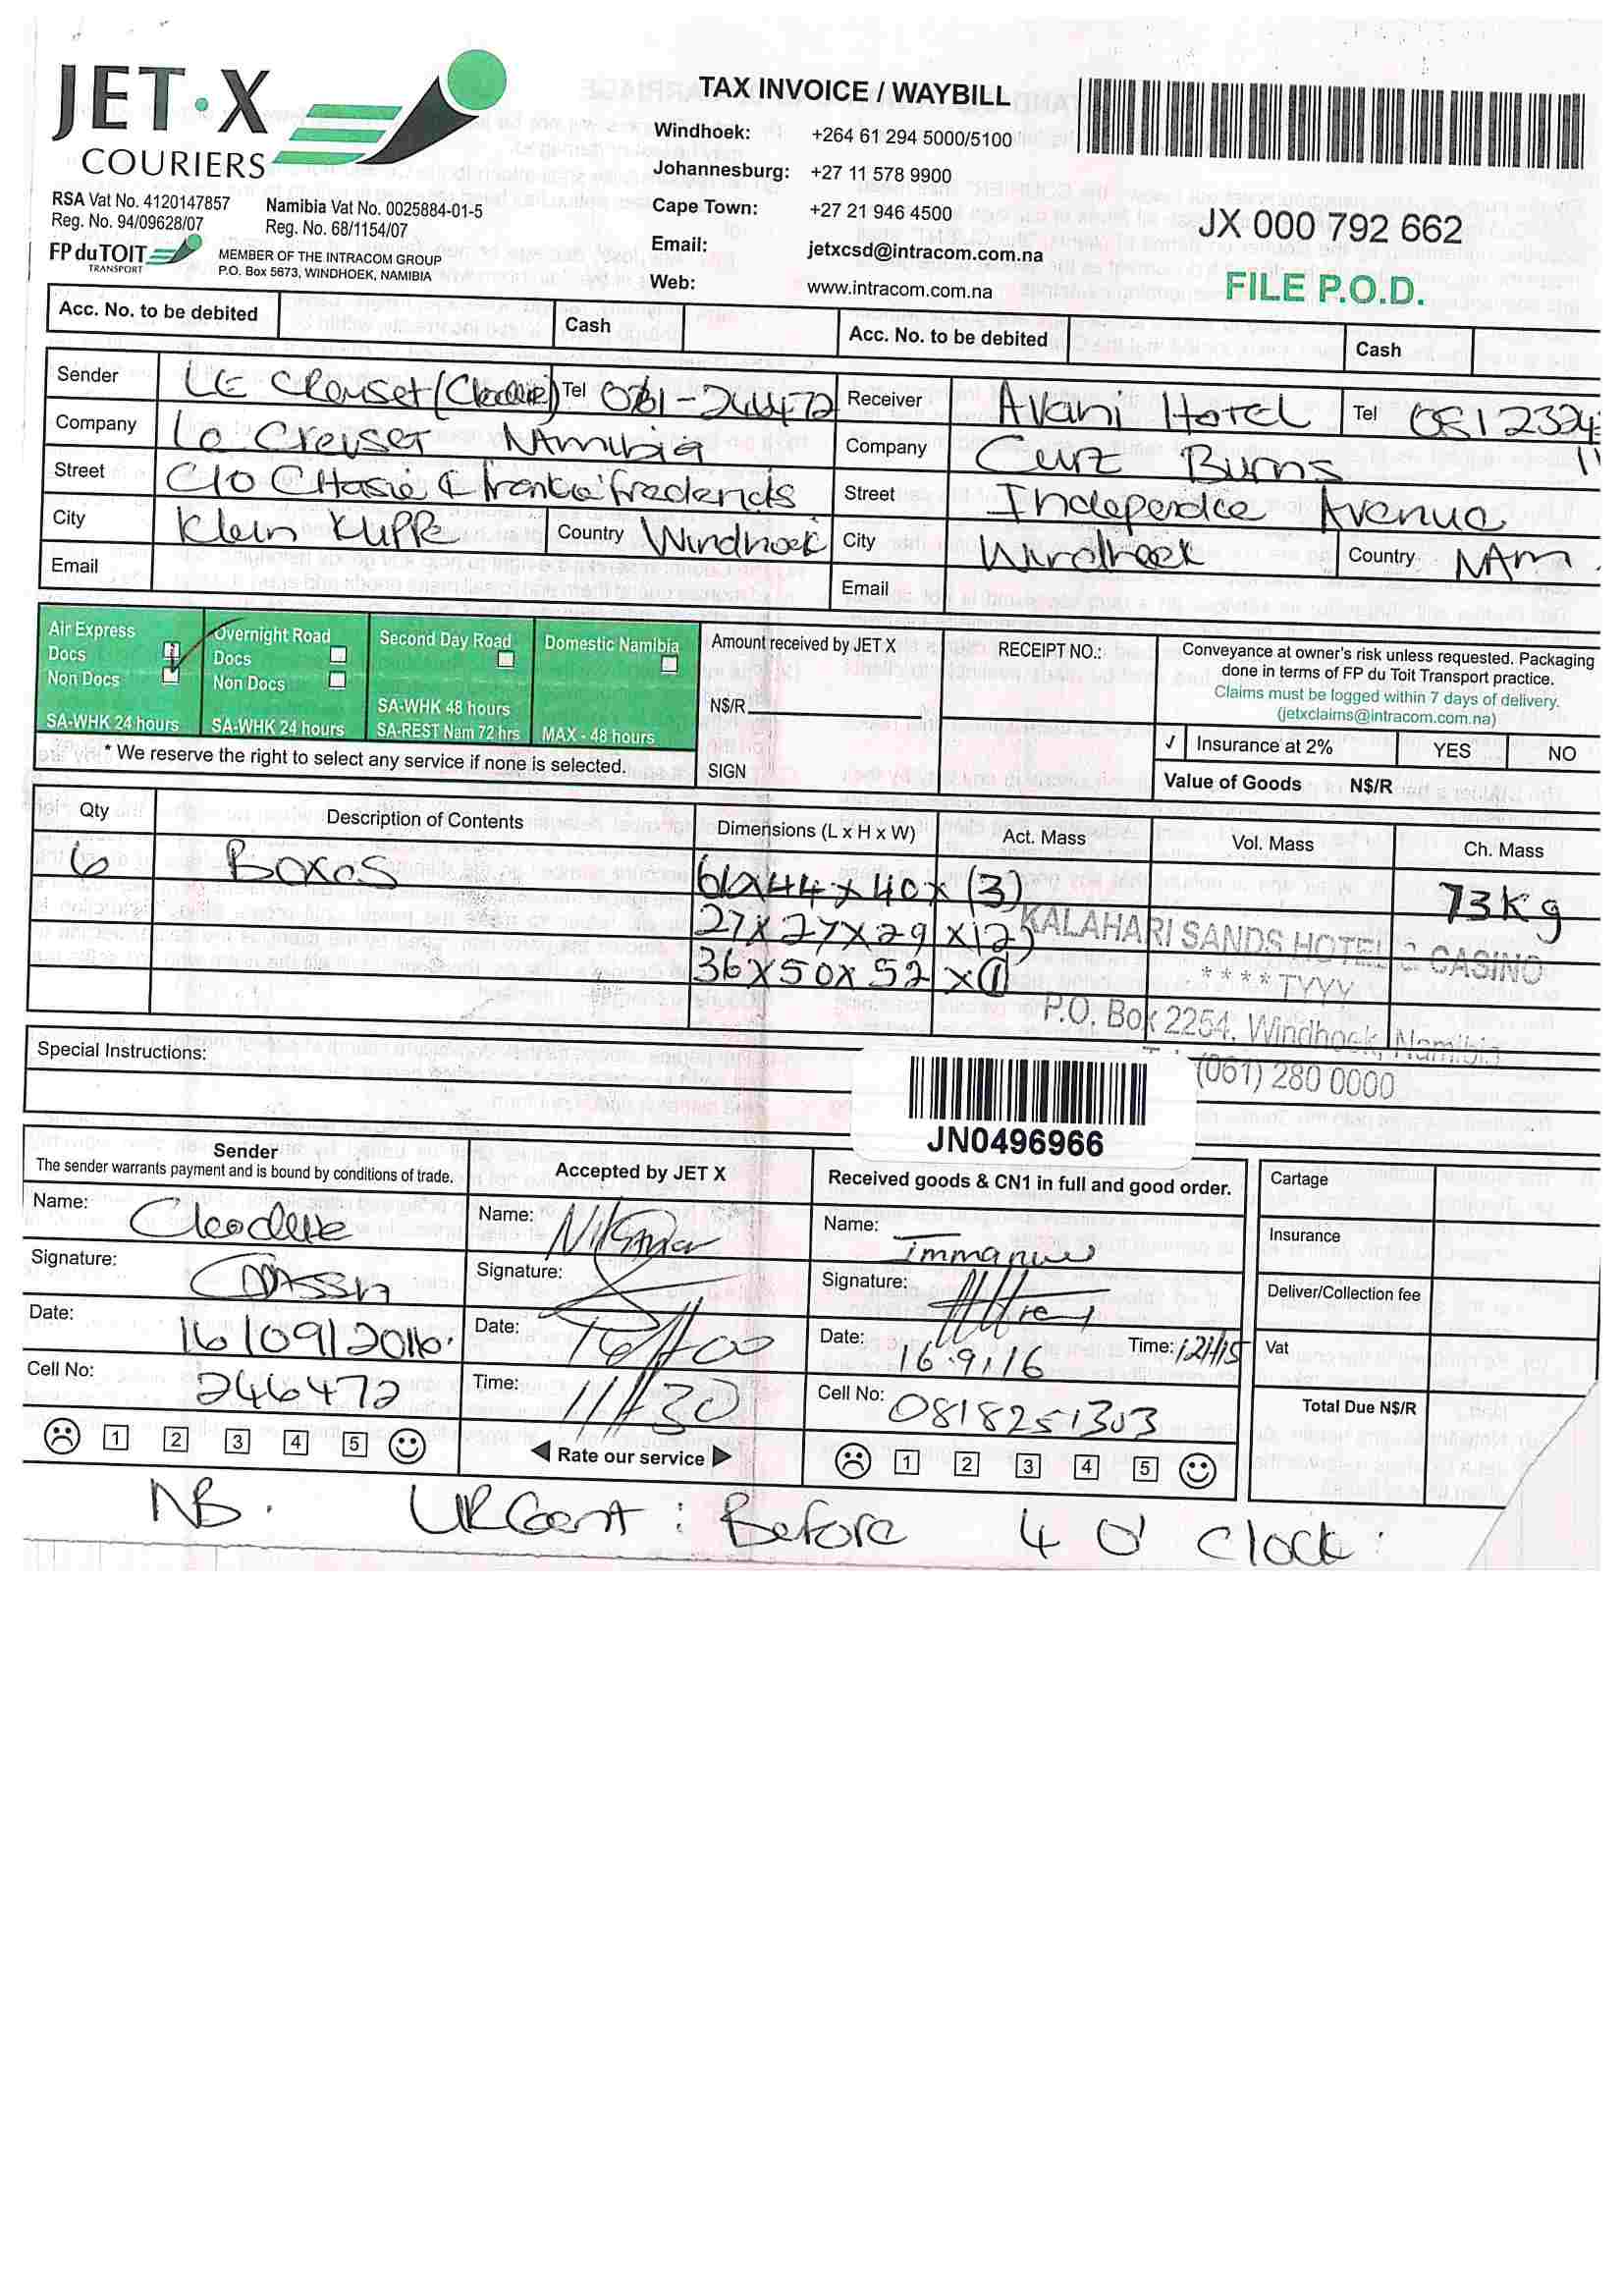 JET·X
COURIERS
RSA Vat No. 4120147857
Reg. No. 94/09628/07
Namibia Vat No. 0025884-01-5
Reg. No. 68/1154/07
FP du TOIT
TRANSPORT
MEMBER OF THE INTRACOM GROUP
P.O. Box 5673, WINDHOEK, NAMIBIA
TAX INVOICE / WAYBILL
Windhoek: +264 61 294 5000/5100
Johannesburg: +27 11 578 9900
Cape Town: +27 21 946 4500
Email: jetxcsd@intracom.com.na
Web: www.intracom.com.na
JX 000 792 662
FILE P.O.D.
Acc. No. to be debited Cash
Acc. No. to be debited Cash
Sender LE CReuset (Clodene) Tel 061-246472
Company Le Creuset NAmibia
Street C/o CHasie & Frederids
City Klein Kuppe Country Windhoek
Email
Receiver Avani HoTEL Tel 0812324
Company Burns
Street Independce Avenue
City Windhoek Country NAm
Email
Air Express
Docs
Non Docs
SA-WHK 24 hours
Overnight Road
Docs
Non Docs
SA-WHK 24 hours
Second Day Road
SA-WHK 48 hours
SA-REST Nam 72 hrs
Domestic Namibia
MAX - 48 hours
* We reserve the right to select any service if none is selected.
Amount received by JET X
N$/R
SIGN
RECEIPT NO.:
Conveyance at owner's risk unless requested. Packaging
done in terms of FP du Toit Transport practice.
Claims must be logged within 7 days of delivery.
(jetxclaims@intracom.com.na)
√ Insurance at 2% YES NO
Value of Goods N$/R
Qty Description of Contents Dimensions (L x H x W) Act. Mass Vol. Mass Ch. Mass
6 Boxes 61x44x40x(3) 73kg
27x27x29x(2)
36x50x52x(1)
KALAHARI SANDS HOTEL & CASINO
****TYYY
P.O. Box 2254, Windhoek, Namibia
(061) 280 0000
Special Instructions:
JN0496966
Sender
The sender warrants payment and is bound by conditions of trade.
Name: Clodene
Signature:
Date: 16/09/2016.
Cell No: 246472
1 2 3 4 5
Accepted by JET X
Name:
Signature:
Date:
Time: 11H30
Rate our service
Received goods & CN1 in full and good order.
Name: Immanuel
Signature:
Date: 16.9.16 Time: 12H15
Cell No: 0818251303
1 2 3 4 5
Cartage
Insurance
Deliver/Collection fee
Vat
Total Due N$/R
NB. URGent : Before 4 O' Clock